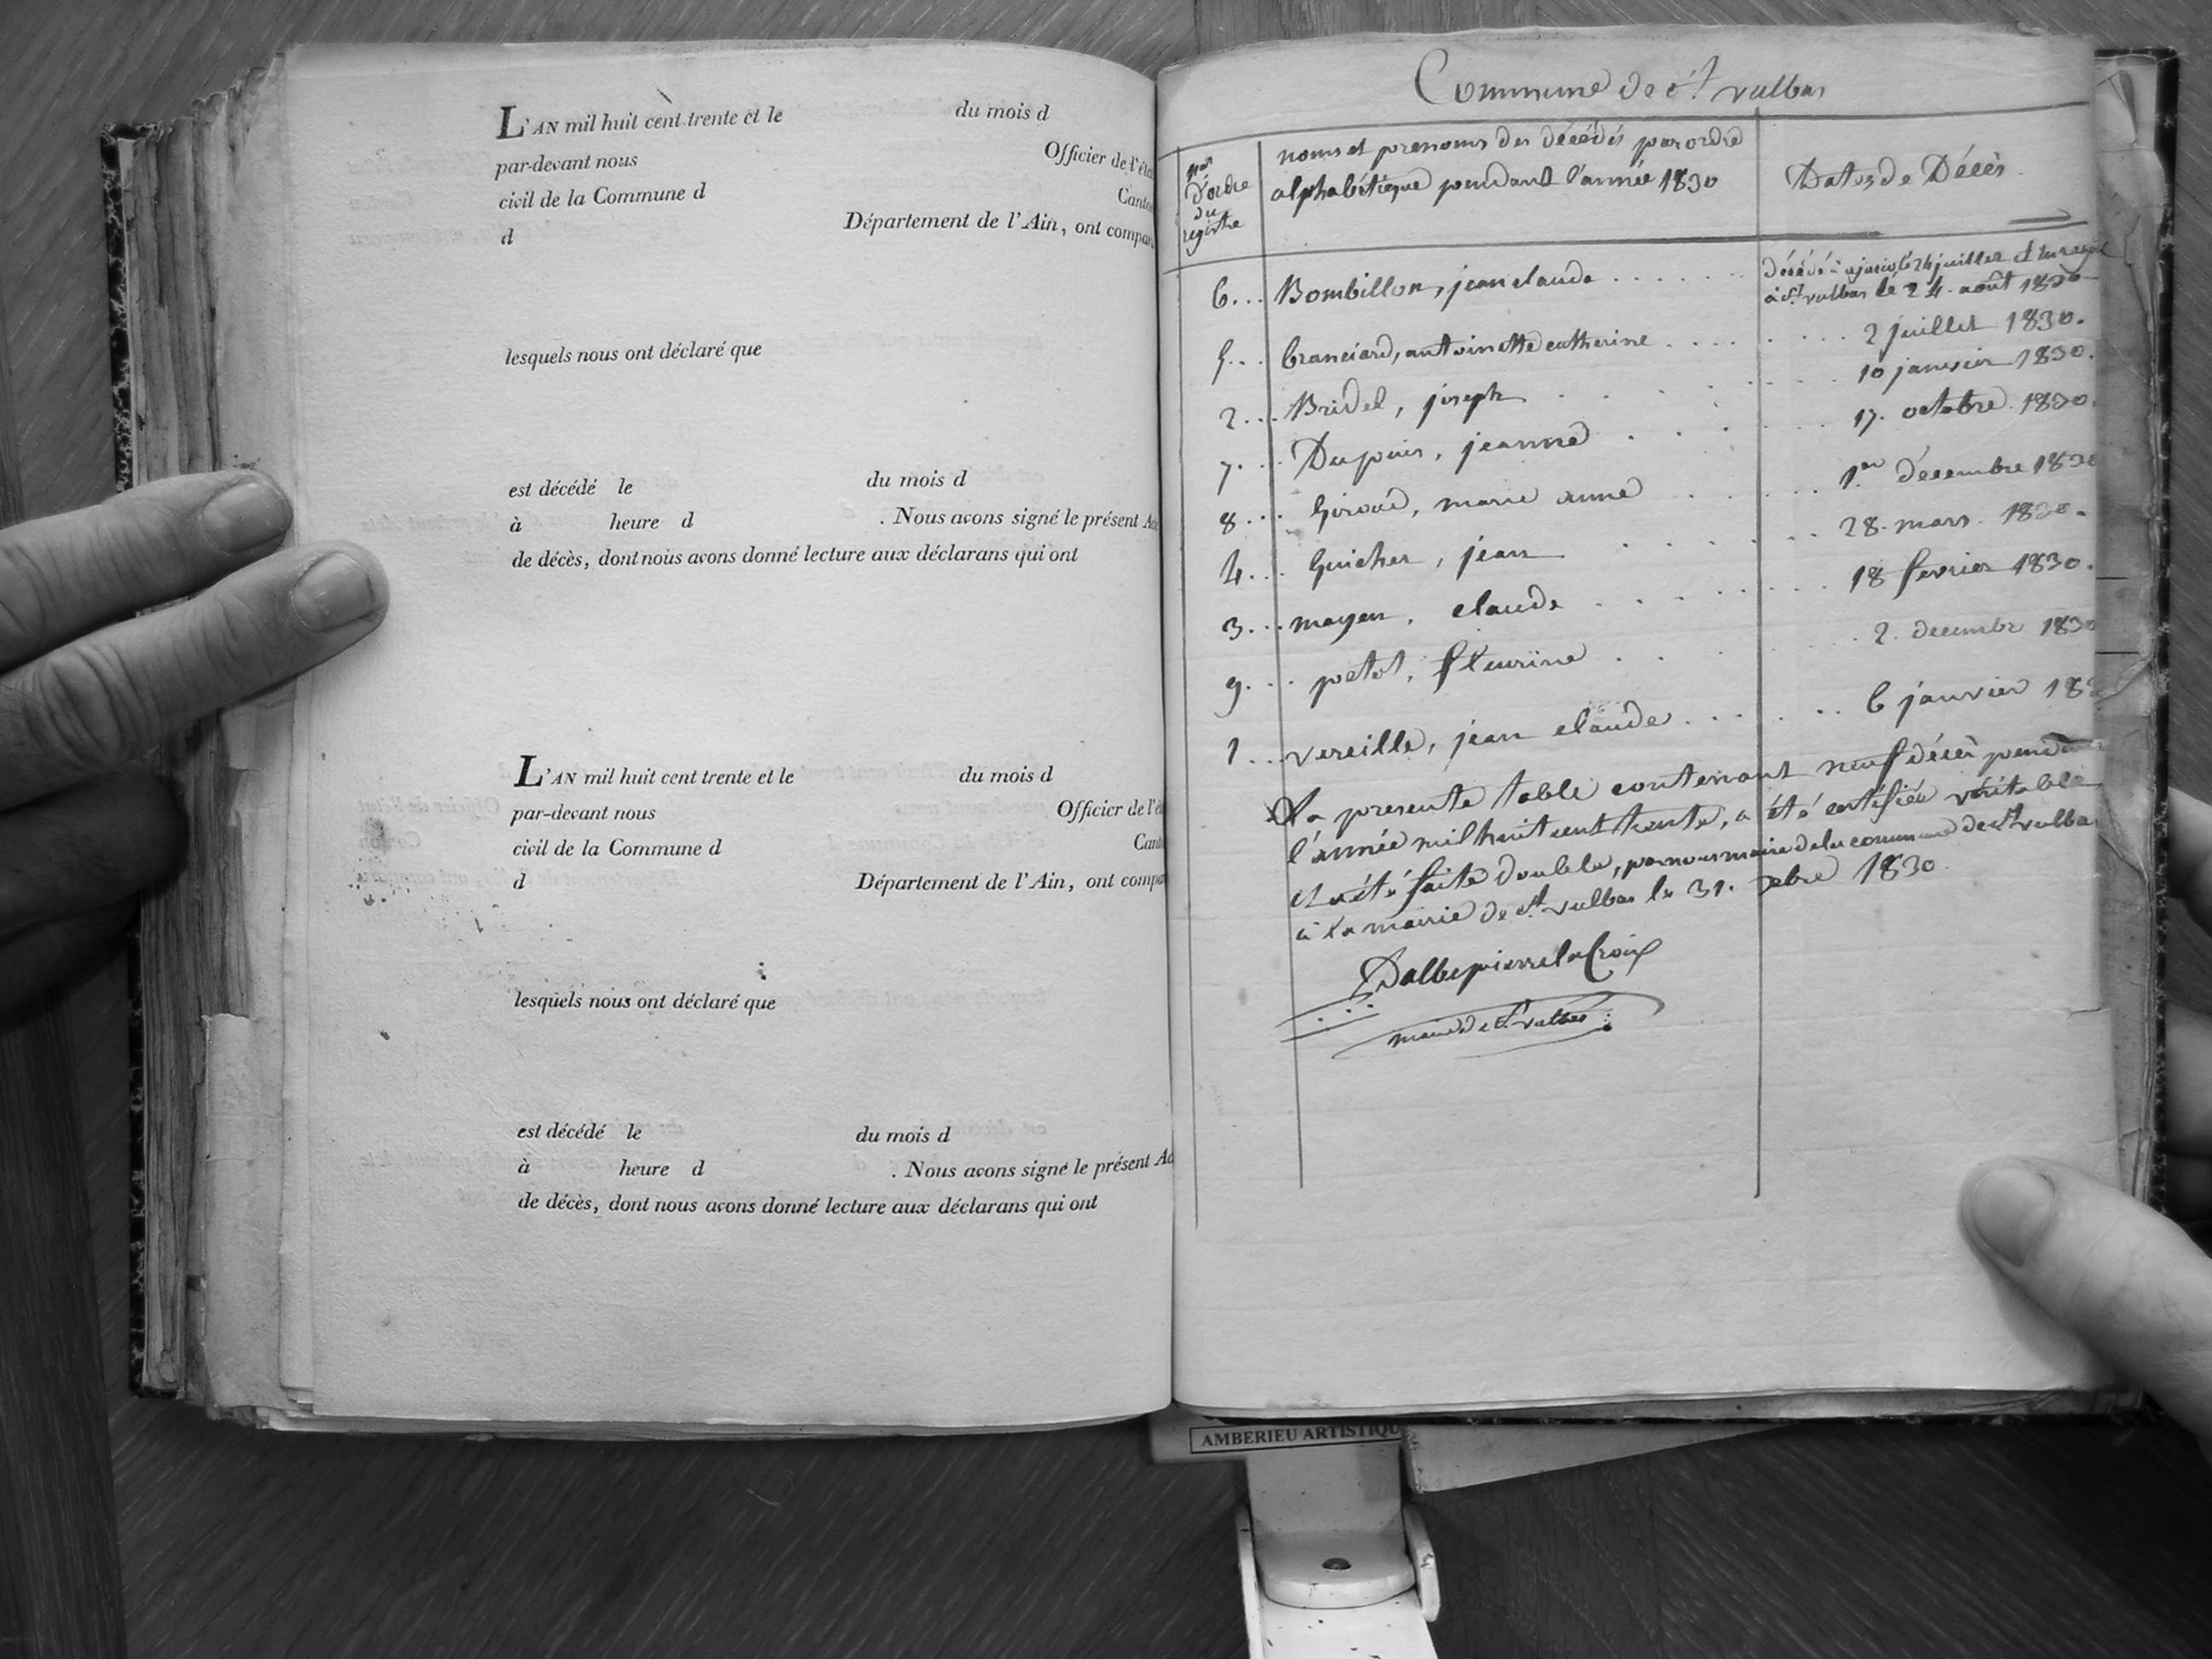 L'AN mil huit cent trente et le du mois d
par-devant nous Officier de l'éta
civil de la Commune d Canto
d Département de l'Ain, ont compar
lesquels nous ont déclaré que
est décédé le du mois d
à heure d . Nous avons signé le présent Ac
de décès, dont nous avons donné lecture aux déclarans qui ont
L'AN mil huit cent trente et le du mois d
par-devant nous Officier de l'é
civil de la Commune d Cant
d Département de l'Ain, ont compa
lesquels nous ont déclaré que
est décédé le du mois d
à heure d . Nous avons signé le présent Ac
de décès, dont nous avons donné lecture aux déclarans qui ont
Commune de St vulbas
nos d'ordre du registre
noms et prenoms des décédés par ordre
alphabétique pendant l'année 1830
Dates de Décès
6... Bombillon, jean claude ...... décédé à ajacio le 24 juillet et
à St vulbas le 24. août 1830
5... branciard, antoinette catherine ...... 2 juillet 1830.
2... Bridel, joseph ...... 10 janvier 1830.
7... Dupuis, jeanne ...... 17. octobre. 1830.
8... Giroud, marie anne ...... 1er décembre 1830
4... Guicher, jean ...... 28. mars. 1830.
3... moyen, claude ...... 18 fevrier 1830.
9... petot, fleurine ...... 2. decembre 1830
1... vereille, jean claude ...... 6 janvier 183
La presente table contenant neuf décès pendant
l'année mil huit cent trente, a été certifiée véritable
et a été faite double, par nous maire de la commune de St vulba
à la mairie de St vulbas le 31. xbre 1830
Dallepierre la Croix
maire de St vulbas
AMBERIEU ARTISTIQU